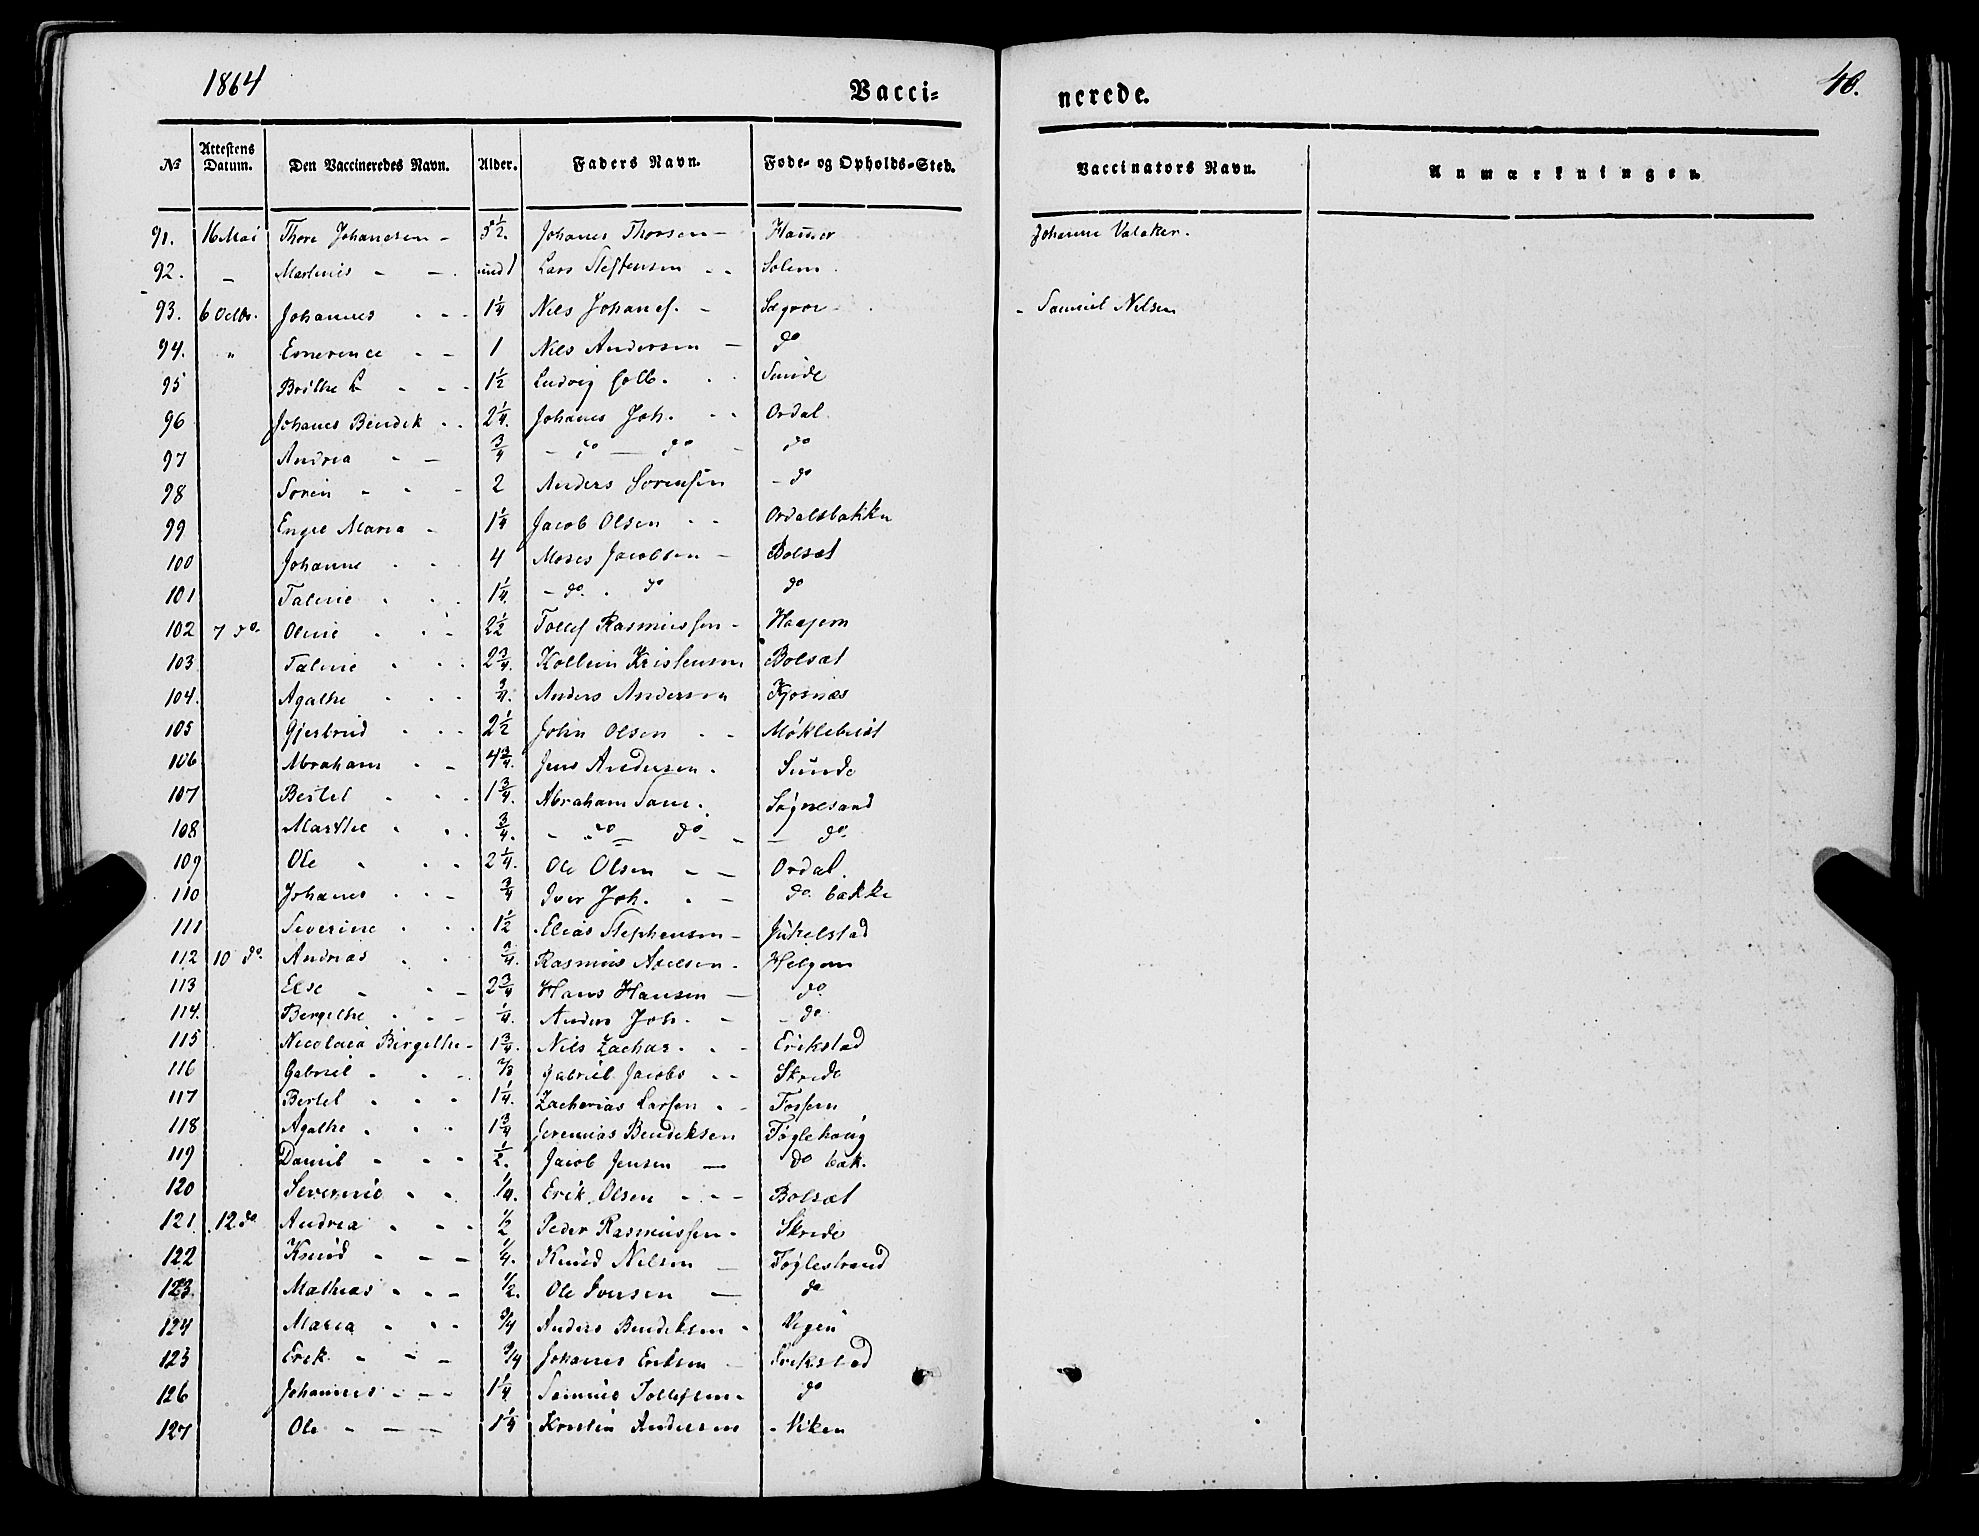 1864
Vacci-
nerede.
48.
No
Attestens Datum.
Den Vaccineredes Navn.
Alder.
Faders Navn.
Føde- og Opholds-Sted.
Vaccinators Navn.
Anmærkninger.
91. 16 Mai Thore Johanesen - 3 1/2. Johanes Thorsen - Johanne Valaker.
92. - - -. und 1 Lars Steffensen - - Solem.
93. 6 Octbr. Johannes - - - 1 1/4 Nils Johanes. - - Samuel Nilsen
94. " - - 1 Nils Andersen - do
95 Brithe - - - 1 1/2 Ludvig - - Sunde
96 Johanes Bendik - - 2 1/4. Johanes Joh. - - Ordal.
97 Andrea - - 3/4 - do - do - do
98 Soren - - - 2 Anders Sørensen - do
99 Engel Maria - 1 1/4 Jacob Olsen - - Ordalsbakke
100 Johanne - - - 4 Moses Jacobsen - Bolsæt
101 Taline - - - 1 1/4. - do. - do do
102 7 do. Oline - - - 2 1/2 Tollef Rasmussen - Haajem
103 Taline - - - 2 3/4. Kolbein Kristensen Bolsæt
104. Agathe - - - 3/4. Anders Andersen Kjøsnæs
105 Gjertrud - - - 2 1/2 John Olsen - - Møklebust
106 Abraham - - 4 3/4. Jens Andersen - Sunde
107 Bertel - - - 1 3/4. Abraham Sam. Søgnesand
108 Marthe - - - 3/4. - do - do - - do
109 Ole - - - 2 1/4. Ole Olsen - - Ordal.
110 Johanes - - - 3/4 Iver Joh. - - do. bakke
111 Severine - - - 1 1/2 Elias Stephensen - Jükelstad
112 10 do. Andreas - - 3/4. Rasmus Axelsen - Helgem
113 Else - - - 2 3/4 Hans Hansen - do.
114. Bergithe - - - 1/4. Anders Joh. - - do.
115 Nicolaia Birgithe - 1 3/4. Nils Zachar. - - Erikstad
116 Gabriel - - - Gabriel Jacobs - - Skrede
117 Bertel - - - 1 1/4. Zacharias Larsen - - Fossem
118 Agathe - - - 1 3/4 Jeremias Bendeksen Føglehoug
119 Daniel - - - 1/2. Jacob Jensen - do bak.
120 Severine - - 1/4. Erik Olsen - - - Bolsæt
121 12 do Andrea - - - 1/2 Peder Rasmussen - Skrede
122 Knud - - - 1/4. Knud Nilsen - Føglestrand
123. Mathias - - - 1/2. Ole Iversen - do
124 Maria - - - 3/4 Anders Bendiksen -
125 Erik - - - 3/4 Johanes Eriksen - Erikstad
126 Johannes - - - 1 1/4 Samuel Tollefsen - do
127 Ole - - - 1 1/4 Kristen Andersen - Viken